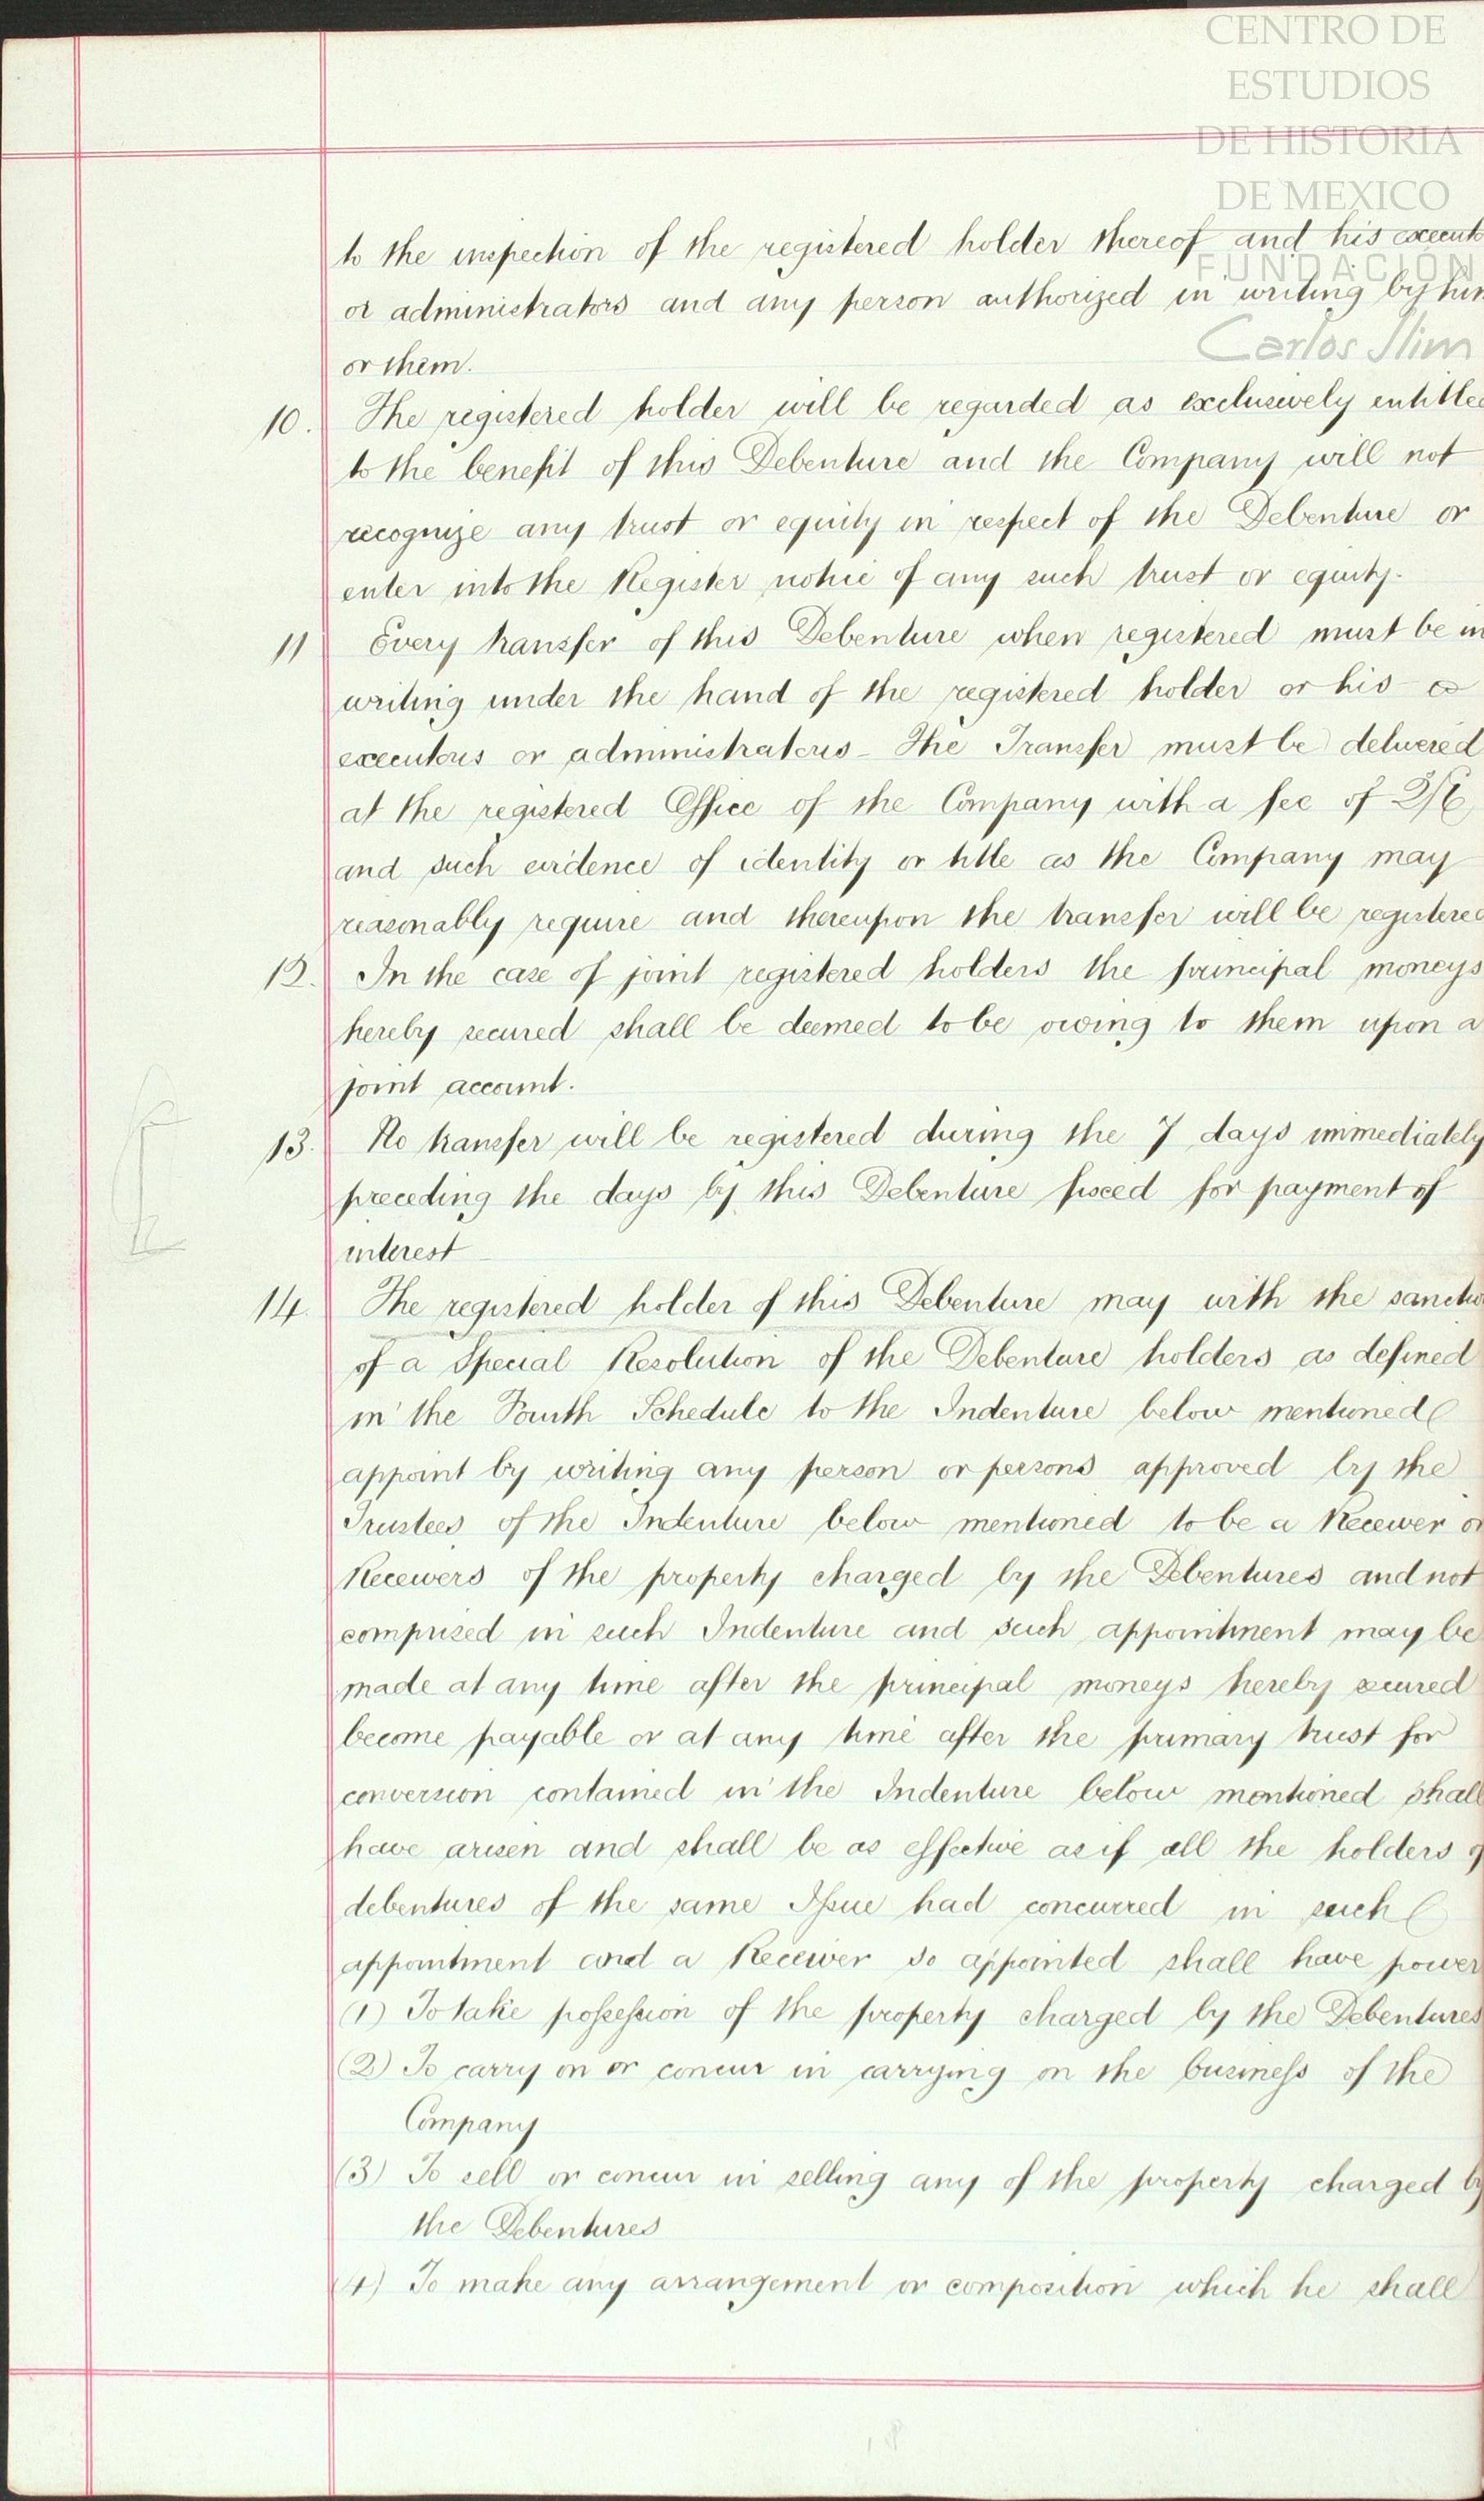 CENTRO DE
ESTUDIOS
DE HISTORIA
DE MEXICO
FUNDACIÓN
Carlos Slim
to the inspection of the registered holder thereof and his execut
or administrators and any person authorized in writing by him
or them.
10. The registered holder will be regarded as exclusively entitled
to the benefit of this Debenture and the Company will not
recognize any trust or equity in respect of the Debenture or
enter into the Register notice of any such trust or equity.
11 Every transfer of this Debenture when registered must be in
writing under the hand of the registered holder or his
executors or administrators - The Transfer must be delivered
at the registered Office of the Company with a fee of 2/6
and such evidence of identity or title as the Company may
reasonably require and thereupon the transfer will be registered
12. In the case of joint registered holders the principal moneys
hereby secured shall be deemed to be owing to them upon a
joint account.
13. No transfer will be registered during the 7 days immediately
preceding the days by this Debenture fixed for payment of
interest
14. The registered holder of this Debenture may with the sanctio
of a Special Resolution of the Debenture holders as defined
in the Fourth Schedule to the Indenture below mentioned
appoint by writing any person or persons approved by the
Trustees of the Indenture below mentioned to be a Receiver or
Receivers of the property charged by the Debentures and not
comprised in such Indenture and such appointment may be
made at any time after the principal moneys hereby secured
become payable or at any time after the primary trust for
conversion contained in the Indenture below mentioned shall
have arisen and shall be as effective as if all the holders of
debentures of the same Issue had concurred in such
appointment and a Receiver so appointed shall have power
(1) To take possession of the property charged by the Debentures
(2) To carry on or concur in carrying on the business of the
Company
(3) To sell or concur in selling any of the property charged by
the Debentures
(4) To make any arrangement or composition which he shall